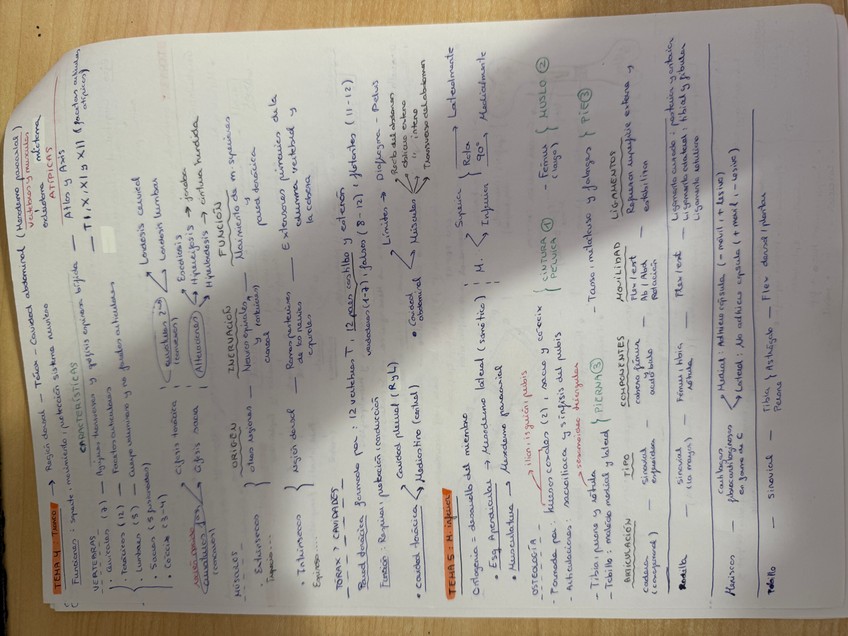 TEMA 4: TRONCO → Región dorsal - Tórax - Cavidad abdominal (Mesodermo paraxial)
vértebras y músculos
esclerotoma miotoma
Funciones: soporte, movimiento, protección sistema nervioso
VERTEBRAS CARACTERÍSTICAS ATÍPICAS
• Cervicales (7) — Agujero transverso y apófisis espinosa bífida — Atlas y Axis
• Torácicas (12) — Facetas articulares — T I, X, XI y XII (facetas articulares atípicas)
• Lumbares (5) — Cuerpo voluminoso y no facetas articulares
• Sacras (5 fusionadas)
• Cóccix (3-4)
Curvaturas 1ªs (cóncavas)
Cifosis torácica
Cifosis sacra
Curvaturas 2ªˢ (convexas)
Lordosis cervical
Lordosis lumbar
Alteraciones
Escoliosis
Hipercifosis → joroba
Hiperlordosis → cintura hundida
MÚSCULOS ORIGEN INERVACIÓN FUNCIÓN
• Extrínsecos — otras regiones — Nervios espinales y craneal — Movimiento de m. superiores y pared torácica
• Intrínsecos — Región dorsal — Ramas posteriores de los nervios espinales — Extensores primarios de la columna vertebral y la cabeza
TÓRAX > CAVIDADES
Pared torácica formada por: 12 vértebras T, 12 pares costillas y esternón
verdaderas (1-7), falsas (8-12), flotantes (11-12)
Función: Respirar, protección, conducción
• Cavidad torácica
Cavidad pleural (R y L)
Mediastino (central)
• Cavidad abdominal
Límites → Diafragma - Pelvis
Músculos
Recto del abdomen
oblicuo externo
" interno
Transverso del abdomen
TEMA 5: M. inferior
Ontogenia = desarrollo del miembro
• Esq. Apendicular → Mesodermo lateral (somático)
• Musculatura → Mesodermo paraxial
M.
Superior
Inferior
Rota 90º
→ Lateralmente
→ Medialmente
OSTEOLOGÍA
ilion, isquion, pubis
- Formada por: huesos coxales (2), sacro y cóccix
- Articulaciones: sacroilíaca y sínfisis del pubis
CINTURA PÉLVICA ①
- Fémur (largo) } MUSLO ②
sesamoideo triangular
- Tibia, peroné y rótula
- Tobillo: maléolo medial y lateral } PIERNA ③
- Tarso, metatarso y falanges } PIE ③
ARTICULACIÓN TIPO COMPONENTES MOVILIDAD LIGAMENTOS
Cadera (coxofemoral) — Sinovial esferoidea — cabeza fémur y acetábulo — Flex / ext Ab / Add Rotación — Refuerzan superficie externa y estabilizan
Rodilla — sinovial (la mayor) — Fémur, tibia, rótula — Flex / ext — Ligamento cruzado: posterior y anterior
Ligamento colateral: tibial y fibular
Ligamento rotuliano
Meniscos — cartílagos fibrocartilaginosos en forma de C
Medial: Adhiere cápsula (- móvil, + lesivo)
Lateral: No adhiere cápsula (+ móvil, - lesivo)
Tobillo — Sinovial — Tibia Peroné } Astrágalo — Flex dorsal / plantar